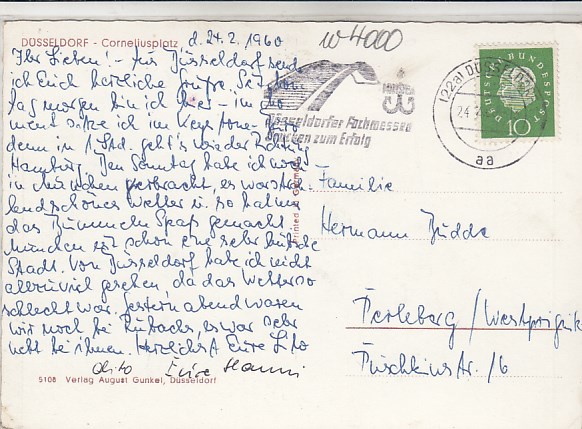 DÜSSELDORF - Corneliusplatz
d. 24. 2. 1960
w 4000
Ihr Lieben! - Aus Düsseldorf send
ich Euch herzliche Grüße. Seit
tag morgen bin ich hier - im Mo
ment sitze ich im
denn in 1 Std. geht's wieder Richtung
Hamburg. Den Sonntag habe ich
in München verbracht, es war
schönes Wetter u. so hat mir
das Bummeln Spaß gemacht
München ist schon eine sehr hübsche
Stadt. Von Düsseldorf habe ich nicht
allzuviel gesehen, da das Wetter so
schlecht war. Gestern abend waren
wir noch bei es war sehr
nett bei ihnen. Herzlichst Eure
Eure Hanni
5108 Verlag August Gunkel, Düsseldorf
Printed in Germany
Düsseldorfer Fachmessen
Brücken zum Erfolg
(22a) DÜSSELDORF
24.
aa
DEUTSCHE BUNDESPOST
10
Familie
Hermann Budde
Perleberg / Westprignitz
Puschkinstr. 16